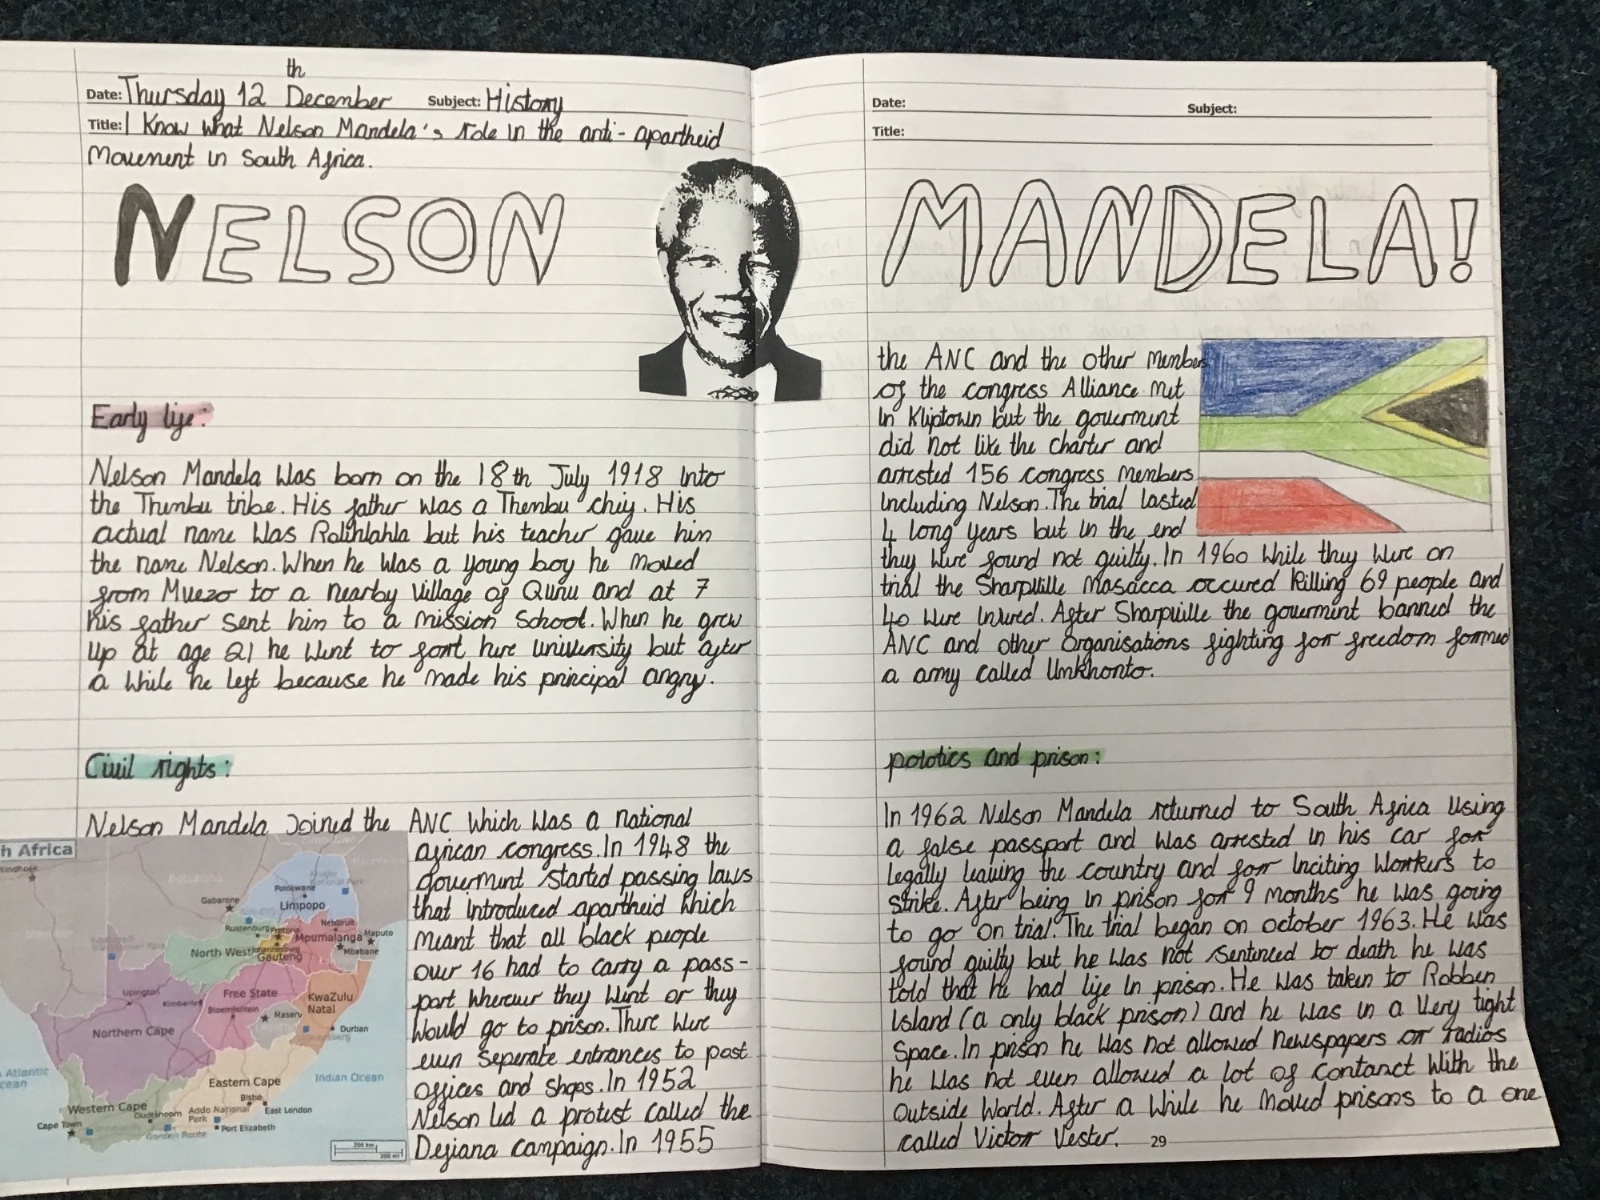 th
Date: Thursday 12 December Subject: History
Title: I Know what Nelson Mandela's role in the anti-apartheid
Movement in South Africa.
NELSON
Early life:
Nelson Mandela Was born on the 18th July 1918 Into
the Thembu tribe. His father was a Thembu chief. His
actual name Was Rolihlahla but his teacher gave him
the name Nelson. When he Was a young boy he moved
from Mvezo to a nearby Village of Qunu and at 7
his father sent him to a mission School. When he grew
up at age 21 he went to fort hare university but after
a While he left because he made his principal angry.
Civil rights:
Nelson Mandela Joined the ANC Which Was a national
african congress. In 1948 the
goverment started passing laws
that introduced apartheid which
meant that all black people
over 16 had to carry a pass-
port Wherever they Went or they
Would go to prison. There Were
even seperate entrances to post
offices and shops. In 1952
Nelson led a protest called the
Defiance campaign. In 1955
h Africa
Windhoek
Botswana
Gabarone
Polokwane
Kruger
National Park
Limpopo
Rustenburg
Pretoria
Johannesburg
Nelspruit
Maputo
Mbabane
North West
Gauteng
Mpumalanga
Upington
Kimberley
Free State
Bloemfontein
Maseru
KwaZulu
Natal
Durban
Northern Cape
Atlantic
cean
Indian Ocean
Eastern Cape
Bisho
East London
Western Cape
Oudtshoorn
Addo National
Park
Port Elizabeth
Cape Town
Garden Route
200 km
Date: Subject:
Title:
MANDELA!
the ANC and the other Members
of the congress Alliance Met
In Kliptown but the goverment
did not like the charter and
arrested 156 congress members
Including Nelson. The trial lasted
4 long years but In the end
they Were found not guilty. In 1960 While they Were on
trial the Sharpville Masacca occured Killing 69 people and
40 Were Injured. After Sharpville the goverment banned the
ANC and other Organisations fighting for freedom formed
a army called Umkhonto.
polotics and prison:
In 1962 Nelson Mandela returned to South Africa Using
a false passport and Was arrested in his car for
legally leaving the country and for Inciting Workers to
strike. After being in prison for 9 months he Was going
to go on trial. The trial began on october 1963. He was
found guilty but he Was not sentenced to death he Was
told that he had life In prison. He Was taken to Robben
Island (a only black prison) and he Was in a Very tight
Space. In prison he Was not allowed newspapers or radios
he Was not even allowed a lot of contanct With the
outside World. After a While he moved prisons to a one
called Victor Vester.
29